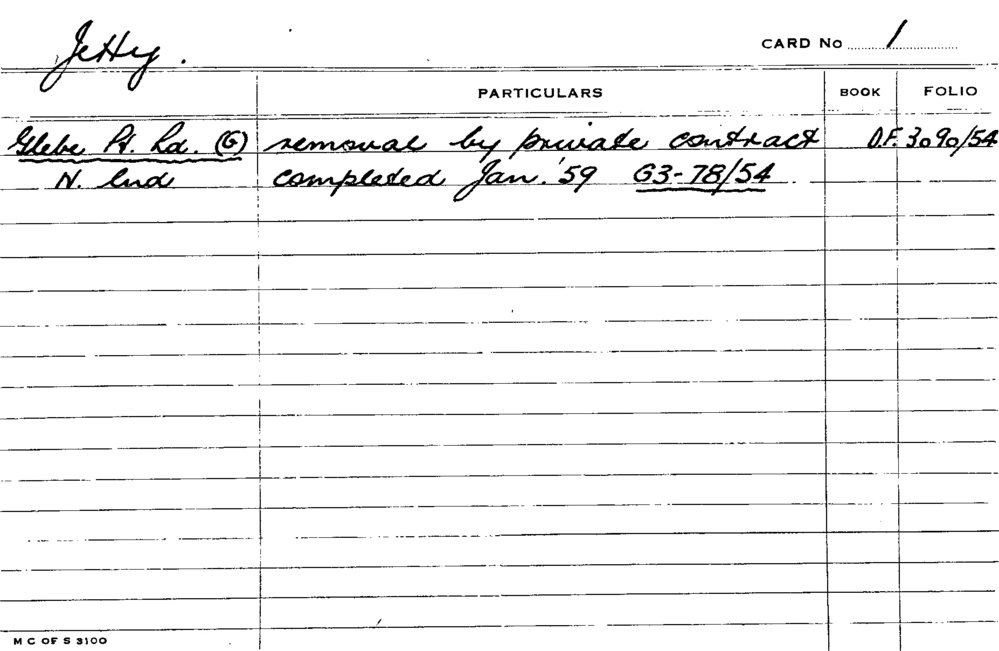 Jetty.
CARD No 1
PARTICULARS BOOK FOLIO
Glebe Pt. Rd. (G) removal by private contract D.F. 3090/54
N. End completed Jan. '59 G3-78/54
M C OF S 3100